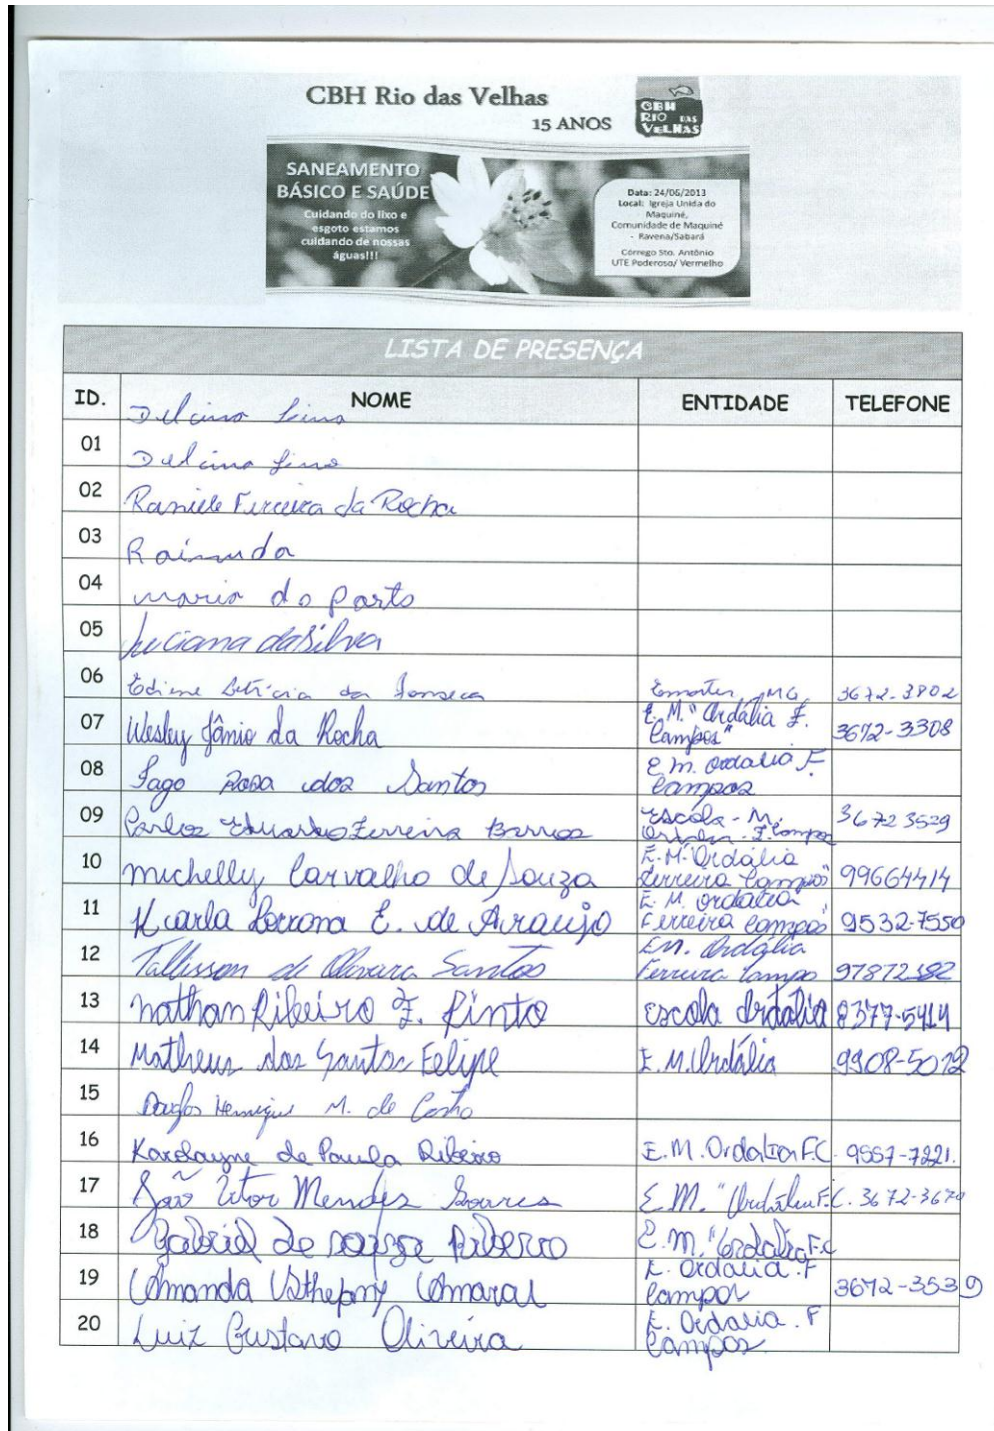 CBH Rio das Velhas
15 ANOS
CBH
RIO DAS
VELHAS
SANEAMENTO
BÁSICO E SAÚDE
Cuidando do lixo e
esgoto estamos
cuidando de nossas
águas!!!
Data: 24/06/2013
Local: Igreja Unida do
Maquiné,
Comunidade de Maquiné
- Ravena/Sabará
Córrego Sto. Antônio
UTE Poderoso/ Vermelho
LISTA DE PRESENÇA
ID. NOME ENTIDADE TELEFONE
Delcino Lino
01 Delcino Lino
02 Raniele Ferreira da Rocha
03 Raimuda
04 maria do Parto
05 Luciana da Silva
06 Edilme Letrícia da Fonseca Emater MG 3672-3802
07 Wesley Jânio da Rocha E. M. "Ordália F. Campos" 3672-3308
08 Iago Rosa dos Santos E. m. ordalia F. Campos
09 Carlos Eduardo Ferreira Barros Escola - M. Ordalia F. Campos 36723529
10 Michelly Carvalho de Souza E. M. Ordália Ferreira Campos 99664414
11 Kcarla Lorrana E. de Araujo E. M. Ordalia Ferreira Campos 9532-7550
12 Tallisson de Oliveira Santos E.M. Ordália Ferreira Campo
13 Nathan Ribeiro F. Pinto Escola Ordália 8377-5414
14 Matheus dos Santos Felipe E. M. Ordália 9908-5072
15 Douglas Henrique M. de
16 Karolayne de Paula Ribeiro E. M. Ordalia F.C. 9557-7221.
17 João Vitor Mendes Soares E M. "Ordália F.C. 3672-3679
18 Gabriel de souza Ribeiro E. m. "Ordalia F.C
19 Amanda Sthepany Amaral E. Ordalia . F Campos 3672-3539
20 Luiz Gustavo Oliveira E. Ordalia . F Campos